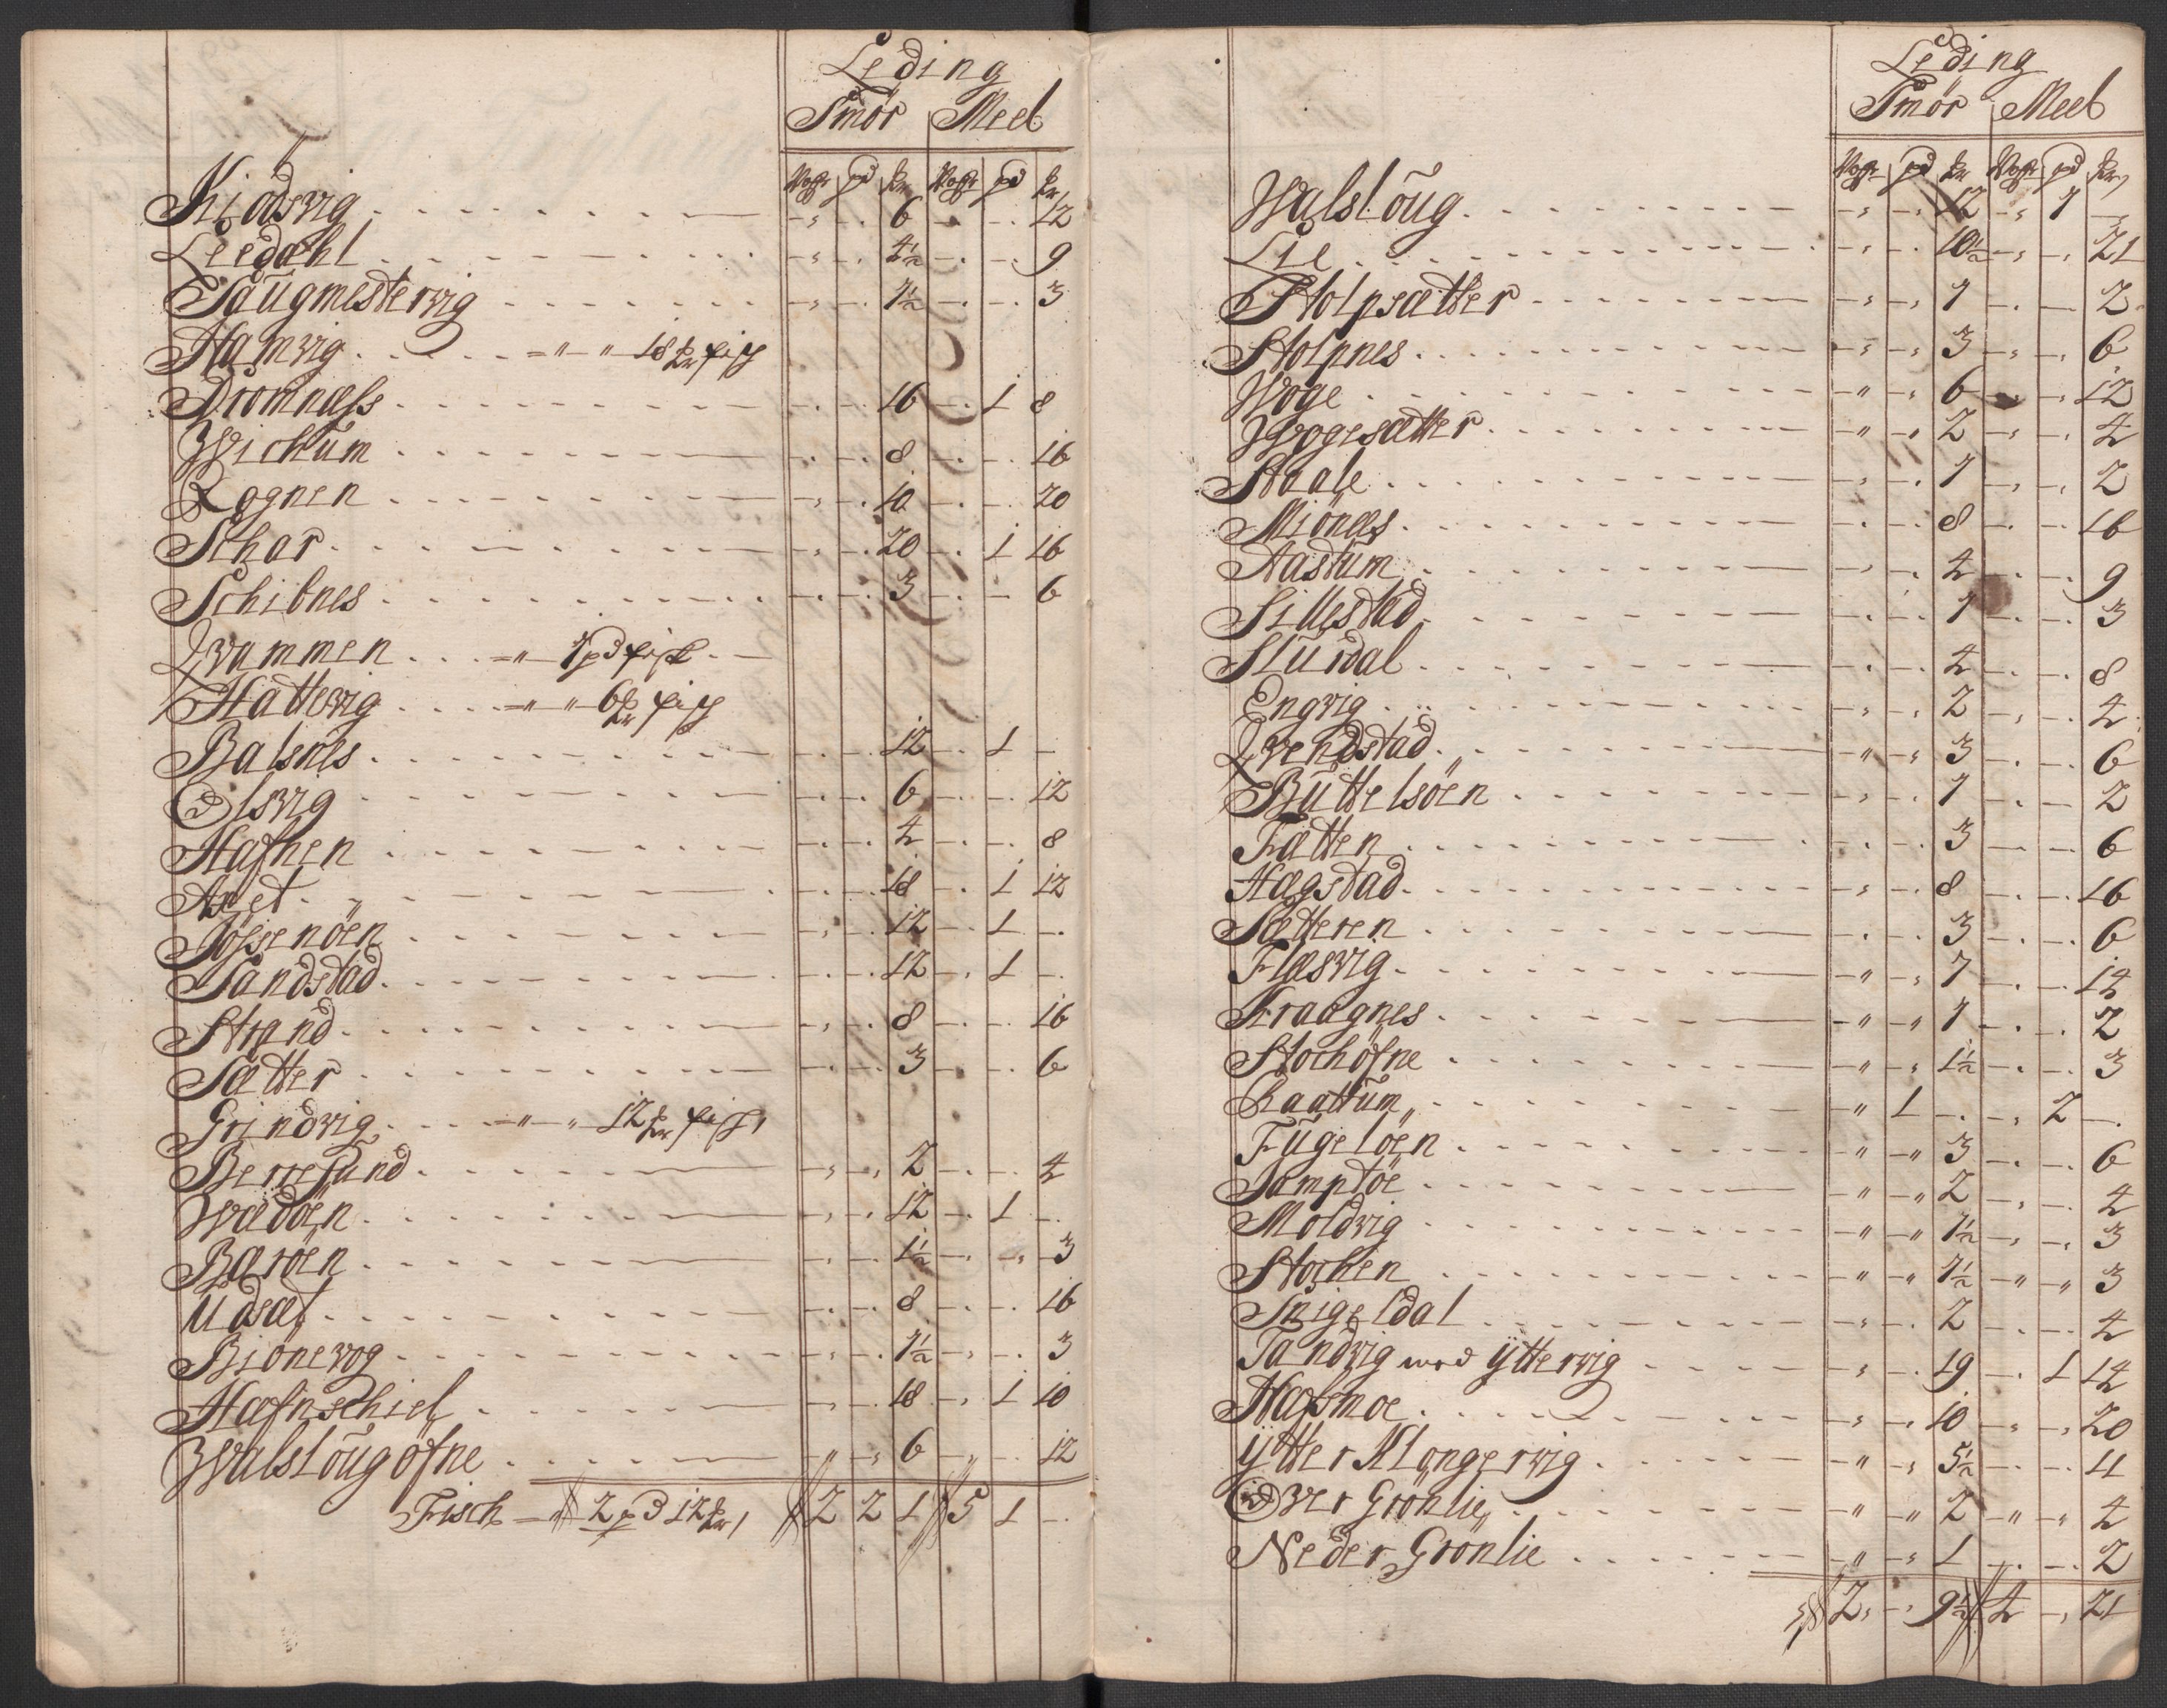 Leding
Smör Meel
Vogr pd ℔r Vogr pd ℔r
Kiödsvig - - 6 - - 12
Leedahl - - 4½ - - 9
Taugmestervig - - 1½ - - 3
Hamvig = " - " 18 ℔r fisch
Dromnæss - - 16 - 1 8
Wichum - - 8 - - 16
Rognen - - 10 - - 20
Schar - - 20 - 1 16
Schibnes - - 3 - - 6
Qvammen = " - 1 pd fisch
Hattevig = " - " 6 ℔r fisch
Balsnes - - 12 - 1 -
Olsvig - - 6 - - 12
Hafnen - - 4 - - 8
Aret - - 18 - 1 12
Jössenöen - - 12 - 1 -
Sandstad - - 12 - 1 -
Strand - - 8 - - 16
Sætter - - 3 - - 6
Grindvig = " - " 12 ℔r fisch
Berresund - - 2 - - 4
Wædöen - - 12 - 1 -
Baröen - - 1½ - - 3
Udsæt - - 8 - - 16
Bionevog - - 1½ - - 3
Hæfnschiel - - 18 - 1 10
Walslöugöfne - - 6 - - 12
Fisch - 2 pd 12 ℔r 2 2 1 5 1 -
Leding
Smör Meel
Vogr pd ℔r Vogr pd ℔r
Walslöug - - 12 - 1 -
Lie - - 10½ - - 21
Stolpsætter - - 1 - - 2
Stolpnes - - 3 - - 6
Woge - - 6 - - 12
Wogesætter - - 2 - - 4
Staale - - 1 - - 2
Miönes - - 8 - - 16
Aastum - - 4 - - 9
Sillestad - - 1 - - 3
Slurdal - - 4 - - 8
Engvig - - 2 - - 4
Qvendstad - - 3 - - 6
Buttelsöen - - 1 - - 2
Fætten - - 3 - - 6
Hægstad - - 8 - - 16
Sætteren - - 3 - - 6
Flæsvig - - 7 - - 14
Kraagnes - - 1 - - 2
Stochöfne - - 1½ - - 3
Raattum - 1 - - 2 -
Fugelöen - - 3 - - 6
Jamptöe - - 2 - - 4
Moldvig - - 1½ - - 3
Stochen - - 1½ - - 3
Snigeldal - - 2 - - 4
Tandvig med Ÿttervig - - 19 - 1 14
Hafsmoe - - 10 - - 20
Ÿtter Klongervig - - 5½ - - 11
Over Grönlie - - 2 - - 4
Neder Grönlie - - 1 - - 2
2 - 9½ 4 - 21